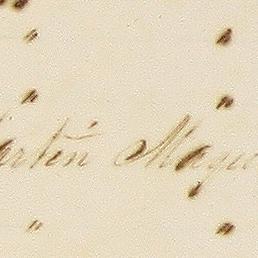 " "
" "
artin Magu
" "